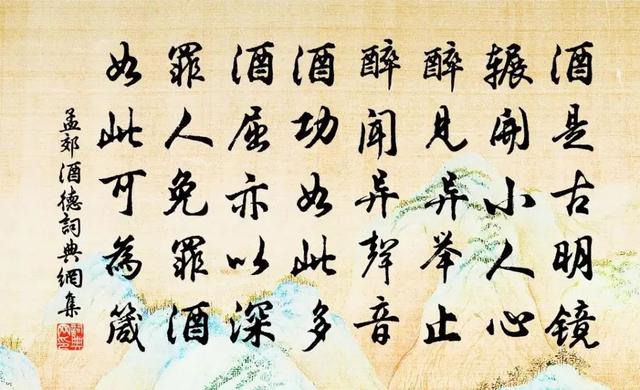 酒是古明镜
辗開小人心
醉見异举止
醉聞异聲音
酒功如此多
酒屈亦以深
罪人免罪酒
如此可為箴
孟郊酒德詞典網集